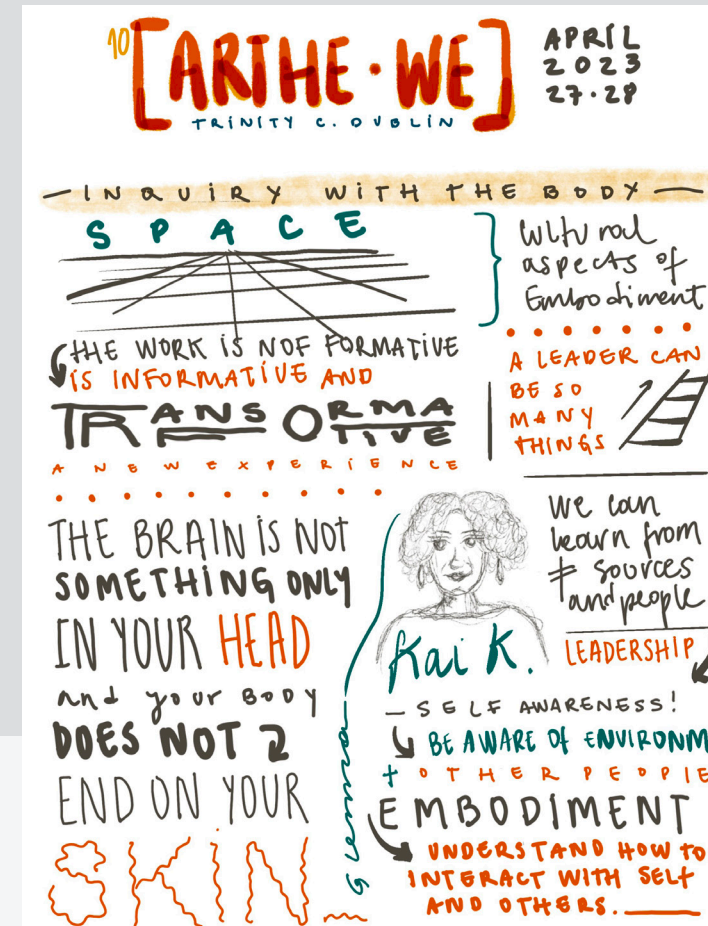 10 [ARTHE·WE]
TRINITY C. DUBLIN
APRIL
2023
27·28
— INQUIRY WITH THE BODY —
SPACE
Cultural
aspects of
Embodiment
THE WORK IS NOT FORMATIVE
IS INFORMATIVE AND
TRANSFORMATIVE
A NEW EXPERIENCE
A LEADER CAN
BE SO
MANY
THINGS
THE BRAIN IS NOT
SOMETHING ONLY
IN YOUR HEAD
and your BODY
DOES NOT
END ON YOUR
SKIN
We can
learn from
≠ sources
and people
Kai K.
LEADERSHIP
— SELF AWARENESS!
BE AWARE OF ENVIRONM
+ OTHER PEOPLE
EMBODIMENT
UNDERSTAND HOW TO
INTERACT WITH SELF
AND OTHERS.